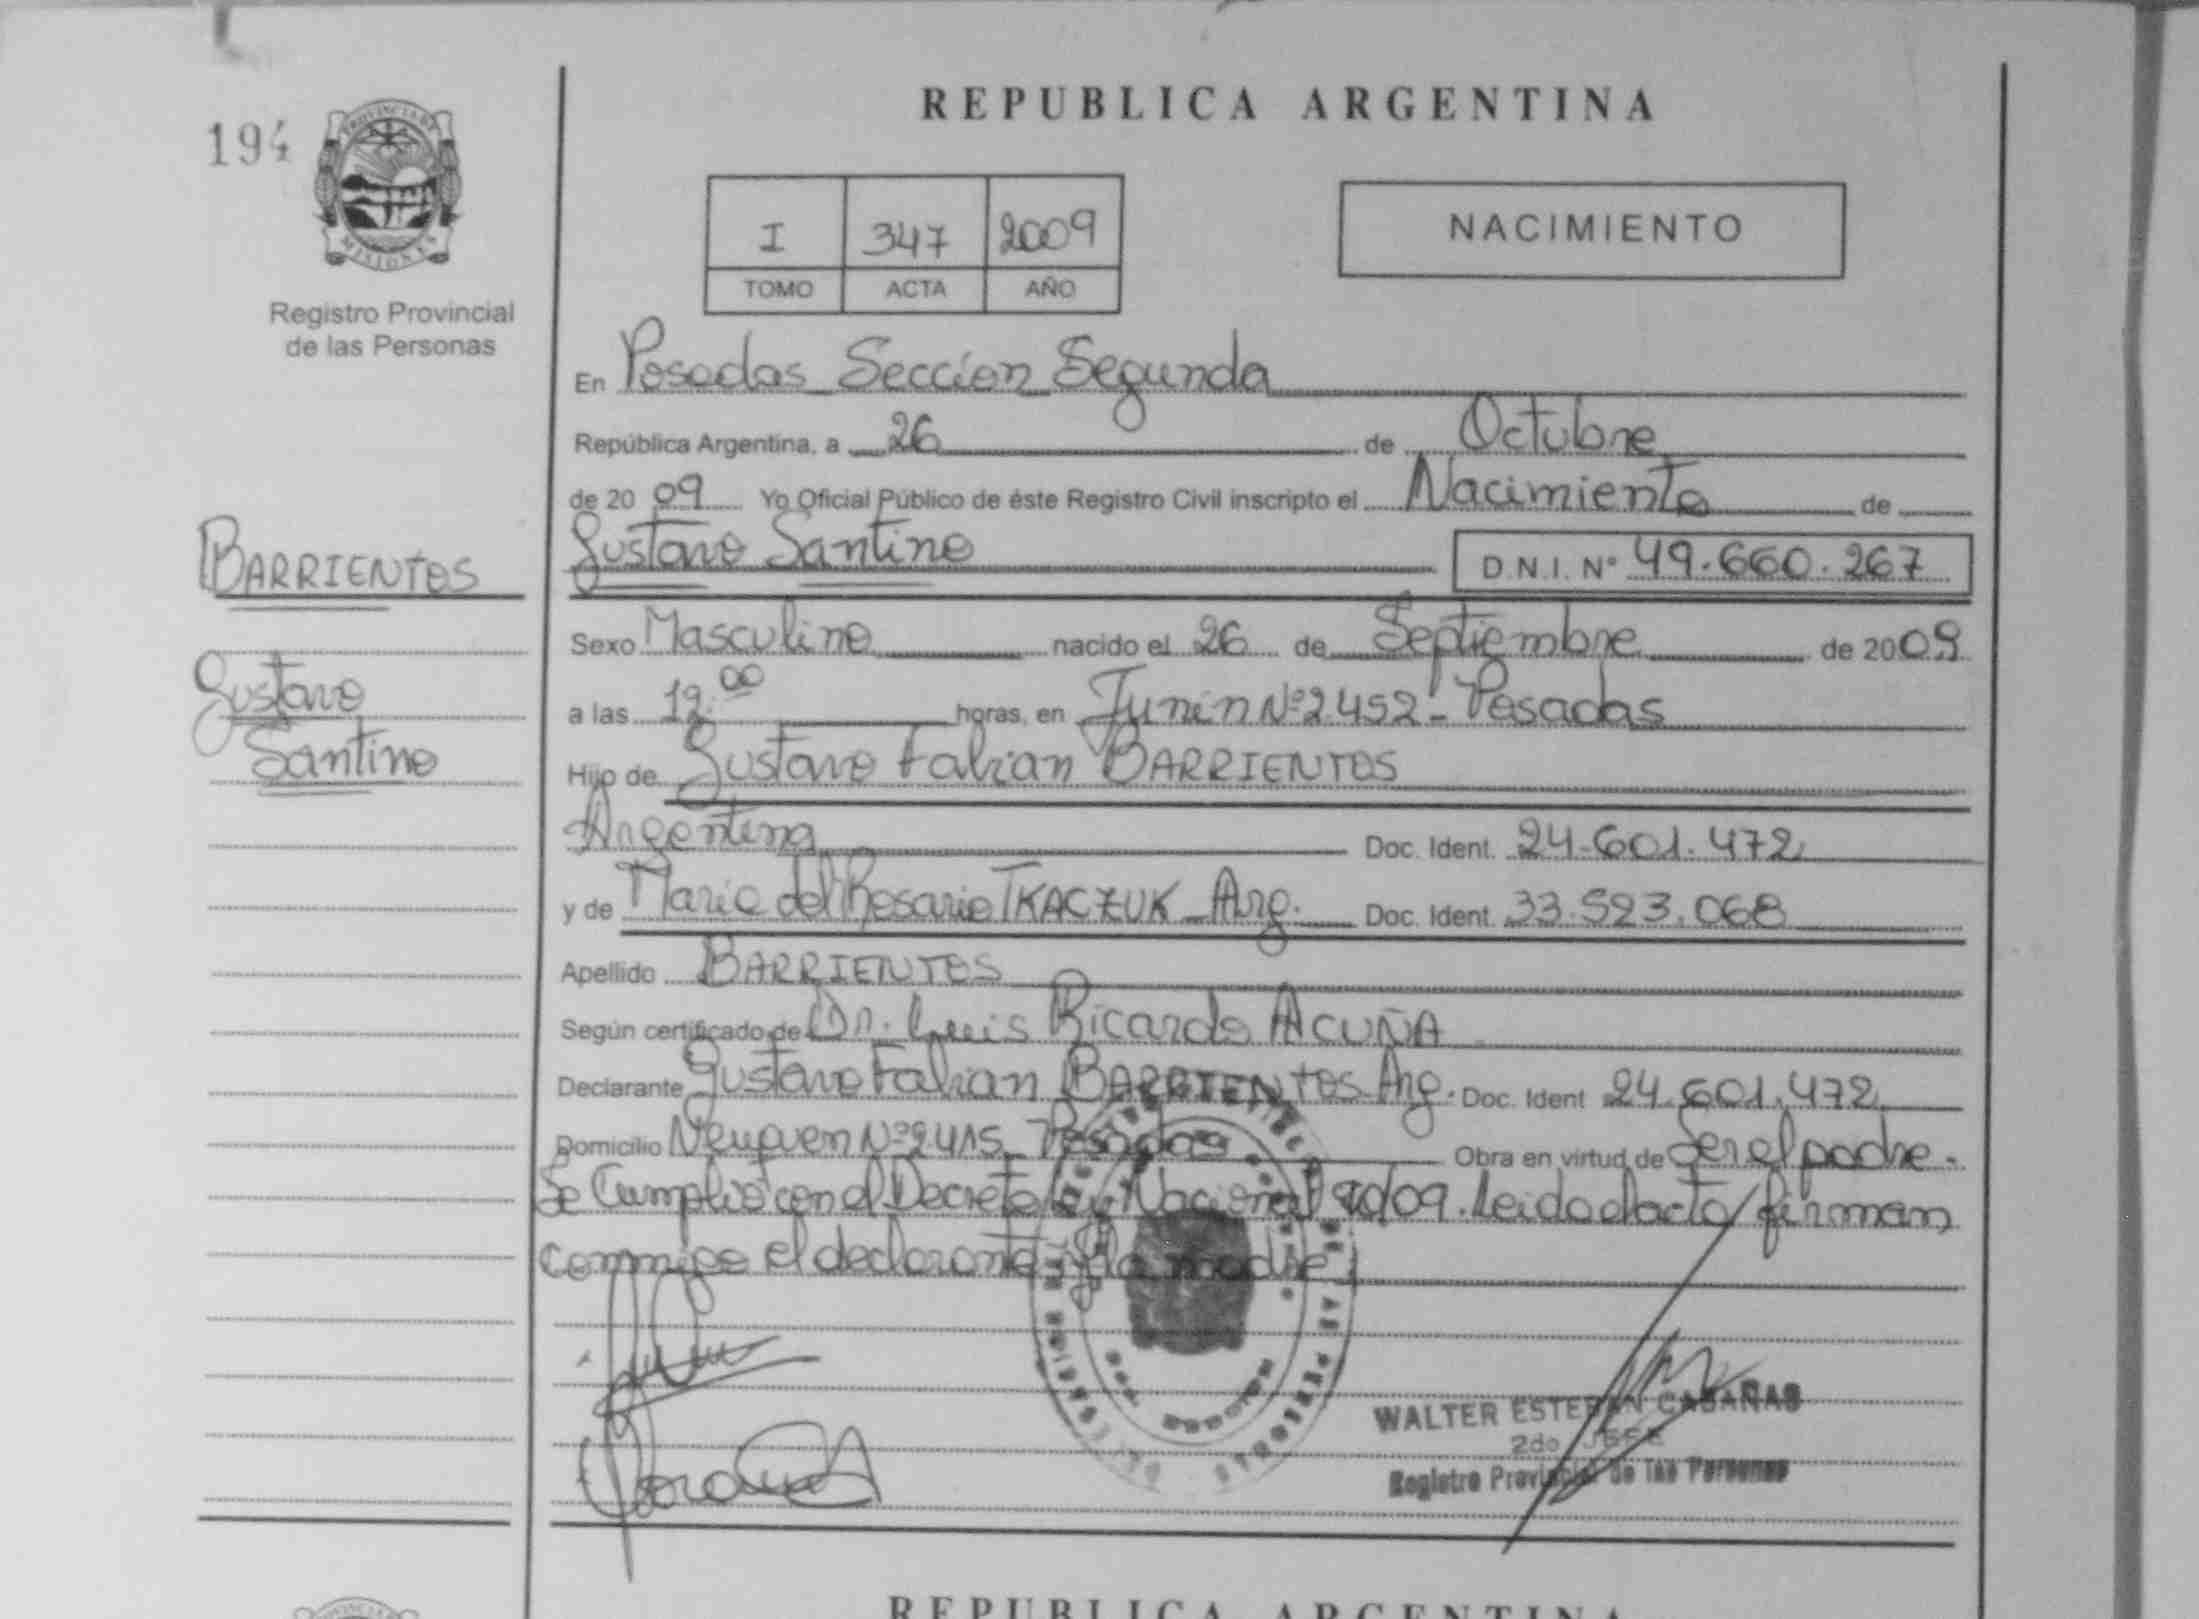 REPUBLICA ARGENTINA
194
PROVINCIA DE
MISIONES
Registro Provincial
de las Personas
I 347 2009
TOMO ACTA AÑO
NACIMIENTO
En Posadas Sección Segunda
República Argentina, a 26 de Octubre
de 2009 Yo Oficial Público de éste Registro Civil inscripto el Nacimiento de
BARRIENTOS
Gustavo Santino
D.N.I. Nº 49.660.267
Sexo Masculino nacido el 26 de Septiembre de 2009
Gustavo
Santino
a las 12:00 horas, en Junín Nº 2452 - Posadas
Hijo de Gustavo Fabian BARRIENTOS
Argentina Doc. Ident. 24.601.472
y de Maria del Rosario TKACZUK Arg. Doc. Ident. 33.523.068
Apellido BARRIENTOS
Según certificado de Dr. Luis Ricardo ACUÑA
Declarante Gustavo Fabian BARRIENTOS Arg. Doc. Ident 24.601.472
Domicilio Neuquen Nº 2415 Posadas Obra en virtud de Ser el padre.
Se Cumplió con el Decreto Nacional 90/09. Leido el acta firman
conmigo el declarante y la madre
WALTER ESTEBAN CABAÑAS
2do JEFE
Registro Provincial de las Personas
REPUBLICA ARGENTINA